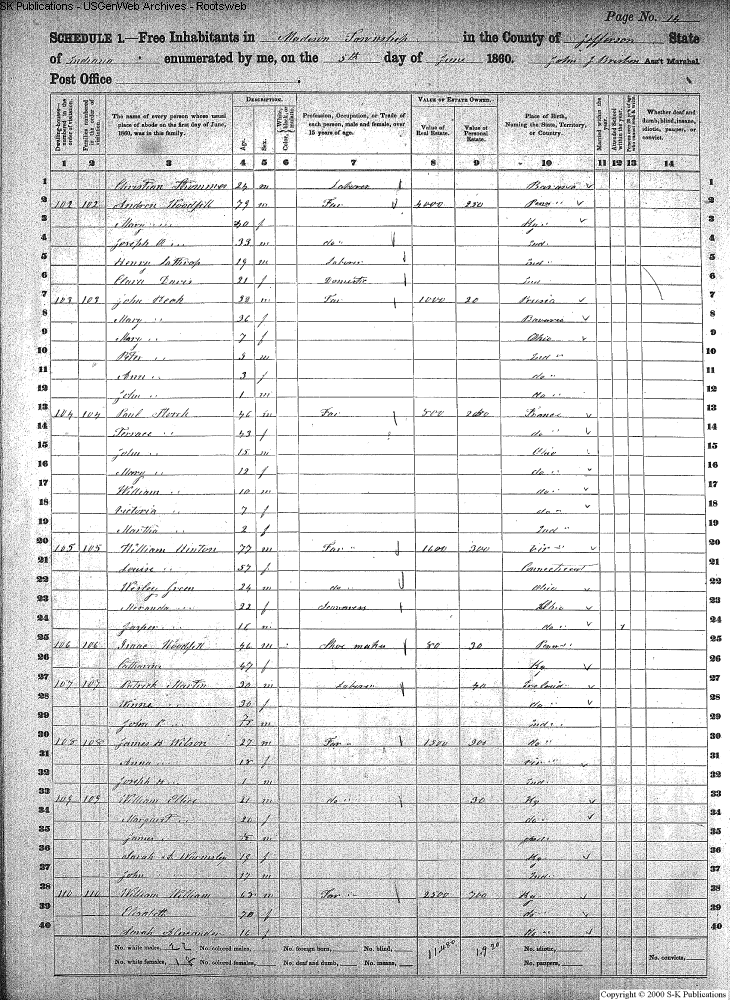 SK Publications - USGenWeb Archives - Rootsweb
Page No. 14
SCHEDULE 1.—Free Inhabitants in Madison Township in the County of Jefferson State
of Indiana enumerated by me, on the 5th day of June 1860. John J Ass't Marshal
Post Office
Dwelling-houses—numbered in the order of visitation.
Families numbered in the order of visitation.
The name of every person whose usual place of abode on the first day of June, 1860, was in this family.
DESCRIPTION.
Age.
Sex.
Color, White, black, or mulatto.
Profession, Occupation, or Trade of each person, male and female, over 15 years of age.
VALUE OF ESTATE OWNED.
Value of Real Estate.
Value of Personal Estate.
Place of Birth, Naming the State, Territory, or Country.
Married within the year.
Attended School within the year.
Whether deaf and dumb, blind, insane, idiotic, pauper, or convict.
1 2 3 4 5 6 7 8 9 10 11 12 13 14
1 Christian 24 m Laborer Bavaria 1
2 102 102 Andrew Woodfill 79 m Far 4000 250 Penn 2
3 Mary " 40 f Ky 3
4 Joseph A " 33 m do " Ind 4
5 Henry Lathrop 19 m Laborer Ind 5
6 Clara Davis 21 f Domestic Ind 6
7 103 103 John Beck 38 m Far 1000 20 Prusia 7
8 Mary " 36 f Bavaria 8
9 Mary " 7 f Ohio 9
10 Peter " m Ind " 10
11 Ann " 3 f do " 11
12 John " 1 m do " 12
13 104 104 Paul Storch 46 m Far 500 200 France 13
14 Terrace " 43 f do " 14
15 John " 15 m Ohio 15
16 Mary " 12 f do " 16
17 William " 10 m do " 17
18 Victoria " 7 f do " 18
19 Martha " 2 f Ind " 19
20 105 105 William Hinton 77 m Far " 1600 300 Vir " 20
21 Louise " 57 f Connecticut 21
22 Wesley Green 24 m do " Ohio 22
23 Miranda " 22 f Seamstress Ohio 23
24 Jasper " 16 m do " 24
25 106 106 Isaac Woodfill 46 m Shoe maker 80 30 Penn " 25
26 Catharine 47 f Ky 26
27 107 107 Patrick Martin 30 m Laborer 40 Ireland 27
28 Winne " 30 f do " 28
29 John P " m Ind " 29
30 108 108 James H Wilson 27 m Far " 1500 300 do " 30
31 Anna " 18 f Vir " 31
32 Joseph H " 1 m Ind 32
33 109 109 William 21 m do " 30 Ky 33
34 Margaret " 20 f do " 34
35 James " m 35
36 Sarah A 19 f Ky 36
37 John " 17 m Ind 37
38 110 110 William William 63 m Far " 2500 700 Ky 38
39 Elizabeth " 70 f do " 39
40 Sarah Alexander 16 f do " 40
No. white males, 22 No. colored males, No. foreign born, No. blind, 11,480 1,920 No. idiotic,
No. white females, 18 No. colored females, No. deaf and dumb, No. insane, No. paupers, No. convicts,
Copyright © 2000 S-K Publications